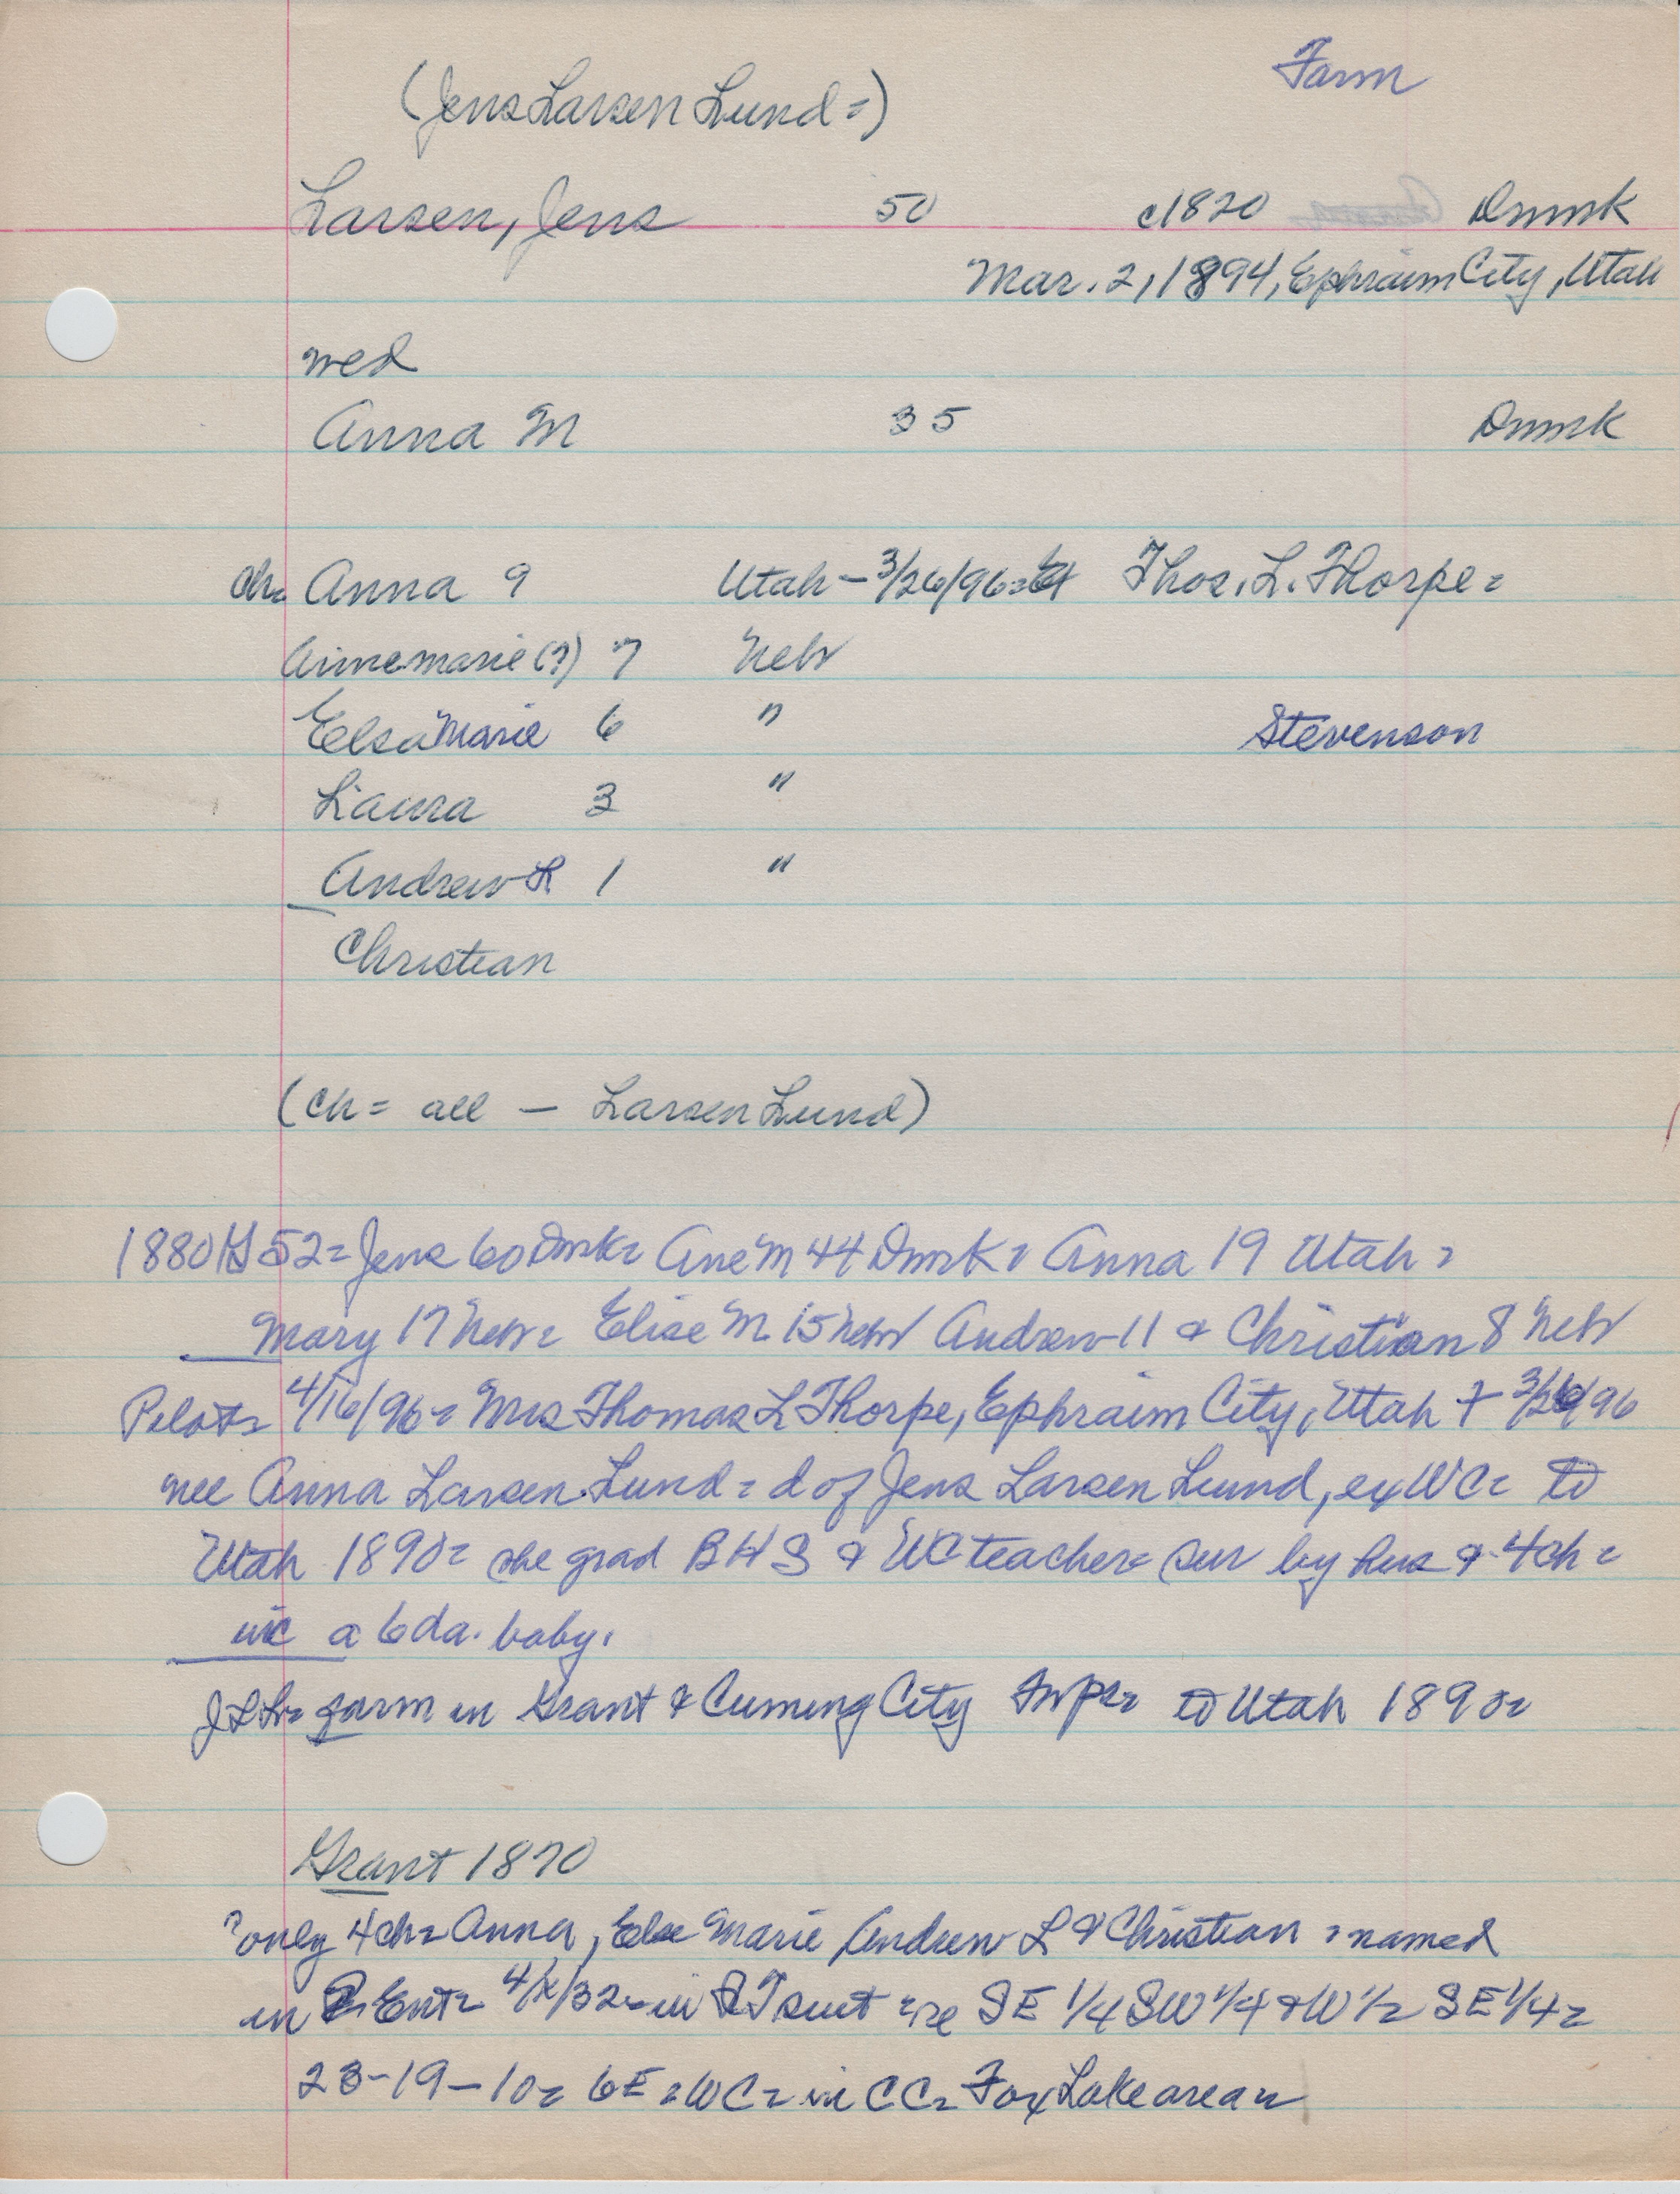 Farm
(Jens Larsen Lund=)
Larsen, Jens 50 c1820 Dnmk
Mar. 2, 1894, Ephraim City, Utah
wed
Anna M 35 Dnmk
ch= Anna 9 Utah - 3/26/96= Thos. L. Thorpe=
Annemarie (?) 7 Nebr
Elsa Marie 6 " Stevenson
Laura 3 "
Andrew L 1 "
Christian
(ch= all - Larsen Lund)
1880 52= Jens 60 Dmk= Ane M 44 Dmk= Anna 19 Utah=
Mary 17 Nebr= Elise M. 15 Nebr Andrew 11 & Christian 8 Nebr
Pilot= 4/16/96= Mrs Thomas L Thorpe, Ephraim City, Utah + 3/26/96
nee Anna Larsen Lund= d of Jens Larsen Lund, ex WC= to
Utah 1890= she grad BHS & WC teacher= sur by hus & 4 ch=
inc a 6 da. baby.
JLL= farm in Grant & Cuming City Twps= to Utah 1890=
Grant 1870
?only 4 ch= Anna, Else Marie Andrew L & Christian = named
in Ent= 32= in suit =re SE 1/4 SW 1/4 & W 1/2 SE 1/4=
23-19-10= 6E=WC= in CC= Fox Lake area=